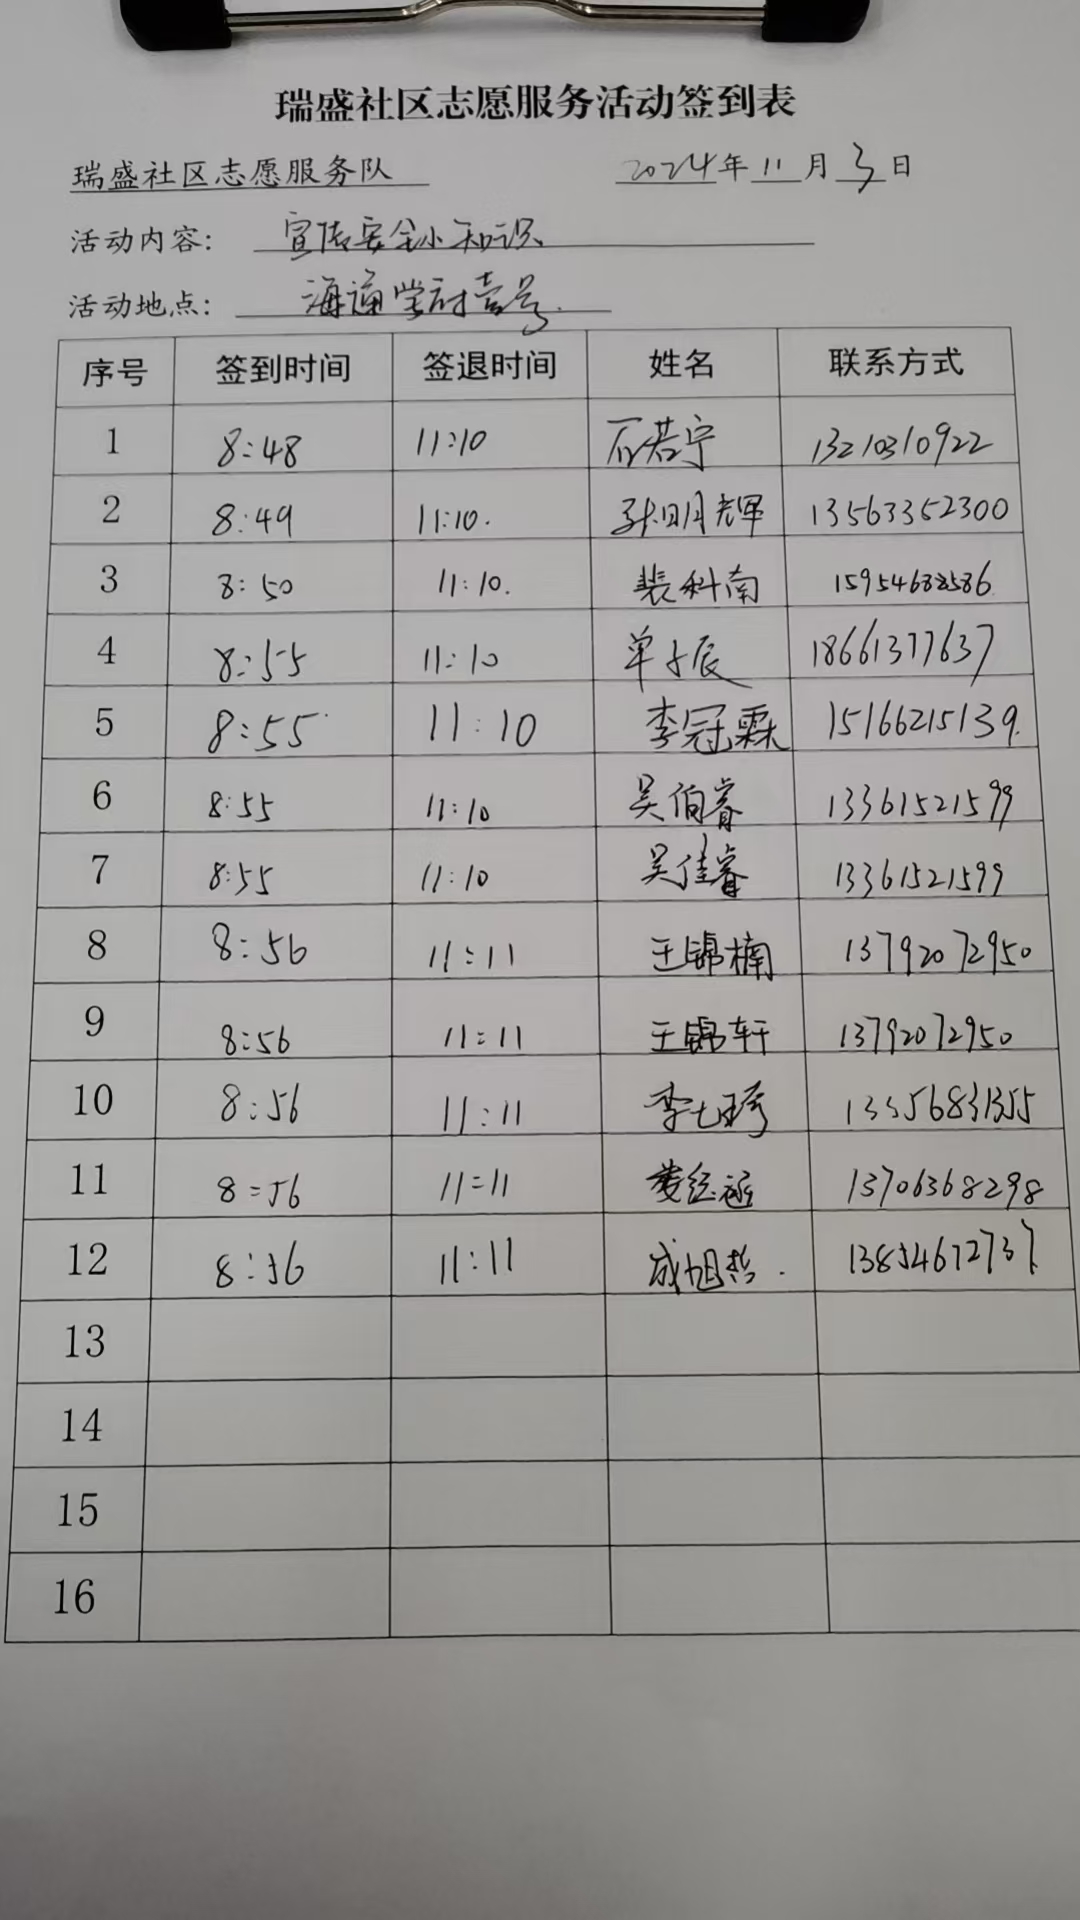 瑞盛社区志愿服务活动签到表
瑞盛社区志愿服务队 2024年11月3日
活动内容: 宣传安全小知识
活动地点: 海通学府壹号.
序号 签到时间 签退时间 姓名 联系方式
1 8:48 11:10 石若宁 13210310922
2 8:49 11:10. 孙明辉 13563352300
3 8:50 11:10. 裴科南 15954688586
4 8:55 11:10 单子辰 18661377637
5 8:55 11:10 李冠霖 15166215139.
6 8:55 11:10 吴佰睿 13361521599
7 8:55 11:10 吴佳睿 13361521599
8 8:56 11:11 王锦楠 13792072950
9 8:56 11:11 王锦轩 13792072950
10 8:56 11:11 13356831355
11 8=56 11=11 13706368298
12 8:56 11:11 成旭哲. 13854672737
13
14
15
16